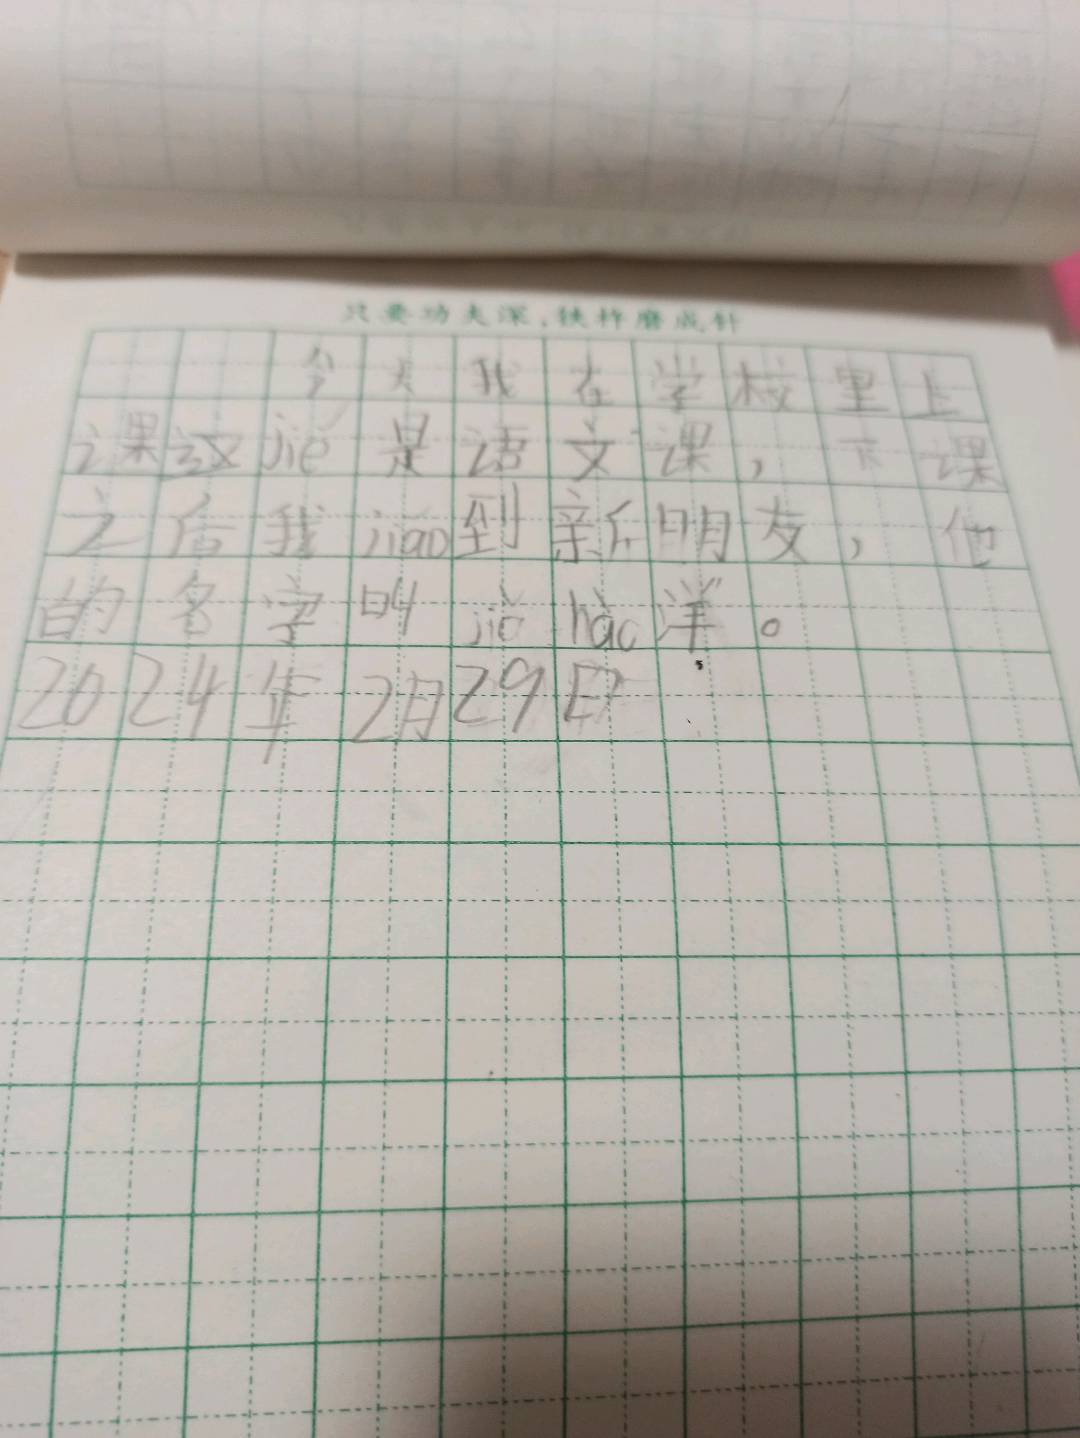 只要功夫深，铁杵磨成针
今天我在学校里上
课这jié是语文课，下课
之后我jiao到新朋友，他
的名字叫jiè hào洋。
2024年2月29日